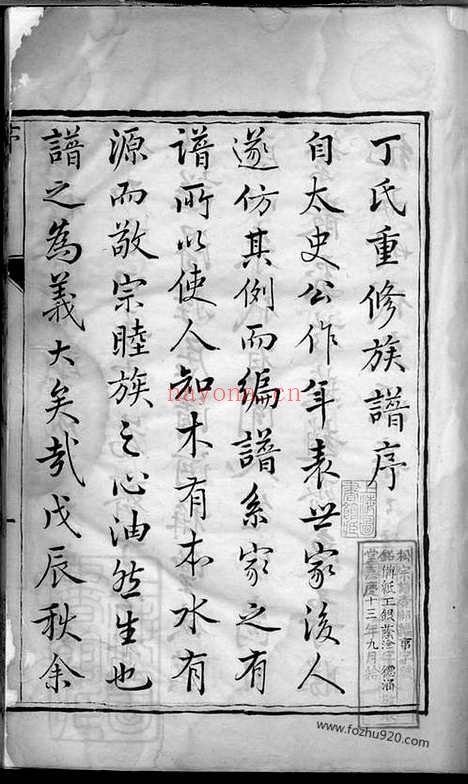 丁氏重修族譜序
自太史公作年表世家後人
遂仿其例而編譜系家之有
譜所以使人知木有本水有
源而敬宗睦族之心油然生也
譜之為義大矣哉戊辰秋余
nayona.cn
上海圖
書館藏
嘉慶十三年九月給
www.fozhu920.com